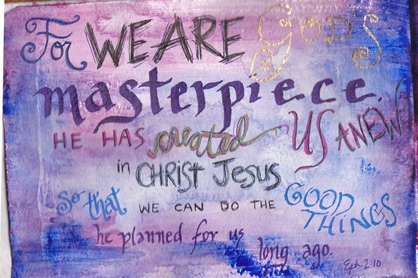 For WE ARE GOD'S
masterpiece.
HE HAS created US ANEW
in CHRIST JESUS
So that WE CAN DO THE GOOD THINGS
he planned for us long ago.
Eph 2:10